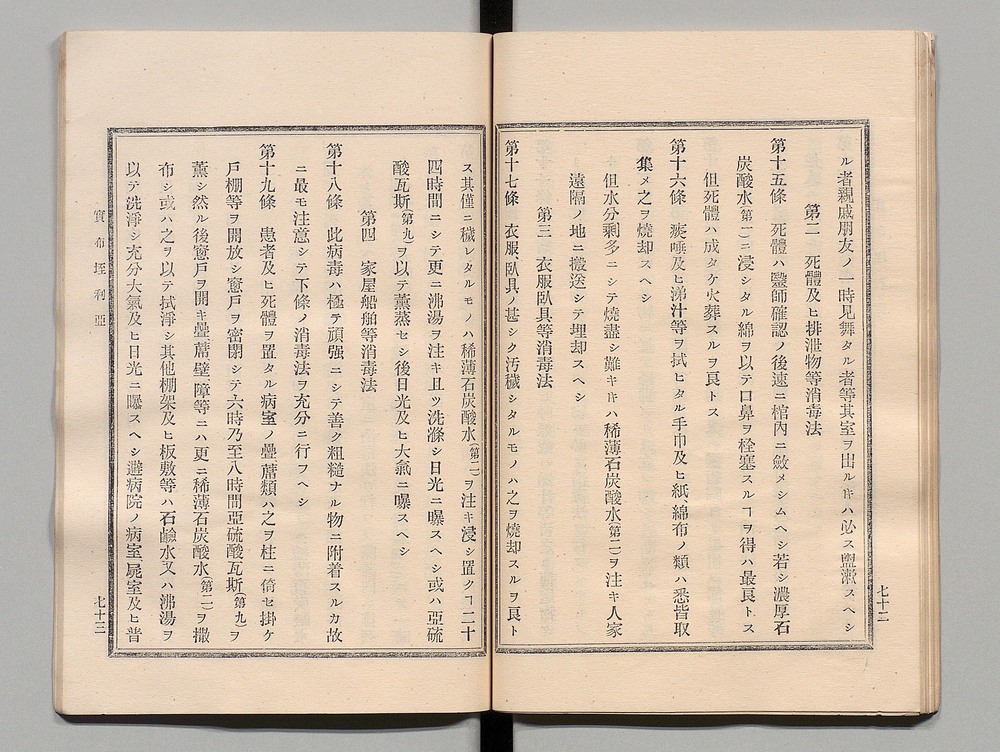 ル者親戚朋友ノ一時見舞タル者等其室ヲ出ルキハ必ス盥漱スヘシ
第二　死體及ヒ排泄物等消毒法
第十五條　死體ハ醫師確認ノ後速ニ棺內ニ斂メシムヘシ若シ濃厚石
炭酸水(第一)ニ浸シタル綿ヲ以テ口鼻ヲ栓塞スルヿヲ得ハ最良トス
但死體ハ成タケ火葬スルヲ良トス
第十六條　痰唾及ヒ涕汁等ヲ拭ヒタル手巾及ヒ紙綿布ノ類ハ悉皆取
集メ之ヲ燒却スヘシ
但水分剩多ニシテ燒盡シ難キキハ稀薄石炭酸水(第二)ヲ注キ人家
遠隔ノ地ニ搬送シテ埋却スヘシ
第三　衣服臥具等消毒法
第十七條　衣服臥具ノ甚シク汚穢シタルモノハ之ヲ燒却スルヲ良ト
七十二
ス其僅ニ穢レタルモノハ稀薄石炭酸水(第二)ヲ注キ浸シ置クヿ二十
四時間ニシテ更ニ沸湯ヲ注キ且ツ洗滌シ日光ニ曝スヘシ或ハ亞硫
酸瓦斯(第九)ヲ以テ薰蒸セシ後日光及ヒ大氣ニ曝スヘシ
第四　家屋船舶等消毒法
第十八條　此病毒ハ極テ頑强ニシテ善ク粗糙ナル物ニ附着スルカ故
ニ最モ注意シテ下條ノ消毒法ヲ充分ニ行フヘシ
第十九條　患者及ヒ死體ヲ置タル病室ノ疊蓆類ハ之ヲ柱ニ倚セ掛ケ
戶棚等ヲ開放シ窓戶ヲ密閉シテ六時乃至八時間亞硫酸瓦斯(第九)ヲ
薰シ然ル後窓戶ヲ開キ疊蓆壁障等ニハ更ニ稀薄石炭酸水(第二)ヲ撒
布シ或ハ之ヲ以テ拭淨シ其他棚架及ヒ板敷等ハ石鹼水又ハ沸湯ヲ
以テ洗淨シ充分大氣及ヒ日光ニ曝スヘシ避病院ノ病室屍室及ヒ普
實布垤利亞
七十三